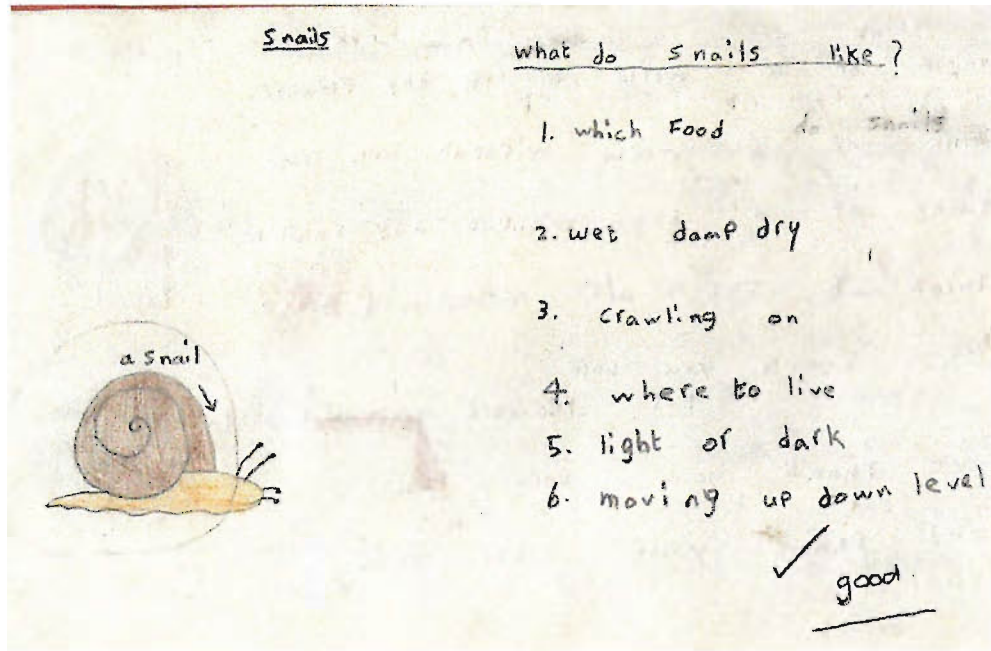 Snails
What do snails like?
1. which Food do snails
2. wet damp dry
3. crawling on
a snail
4. where to live
5. light or dark
6. moving up down level
good.